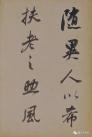 随異人以希
扶老之曲風